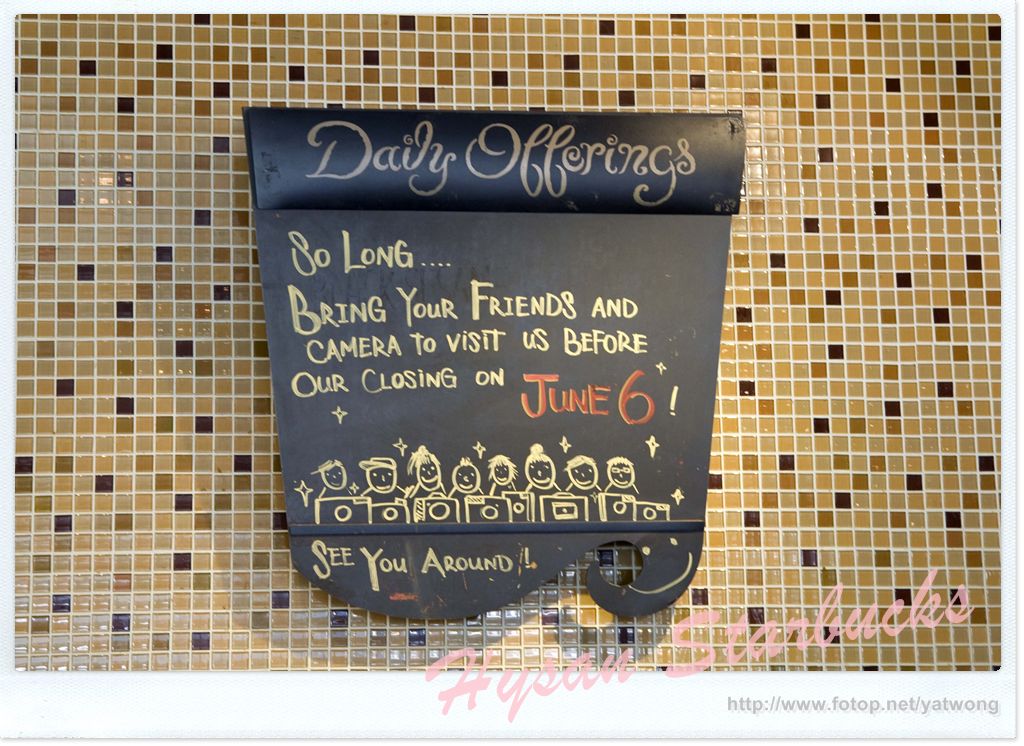 Daily Offerings
So Long....
Bring Your Friends and
camera to visit us Before
Our Closing on June 6!
See You Around!!
Hysan Starbucks
http://www.fotop.net/yatwong